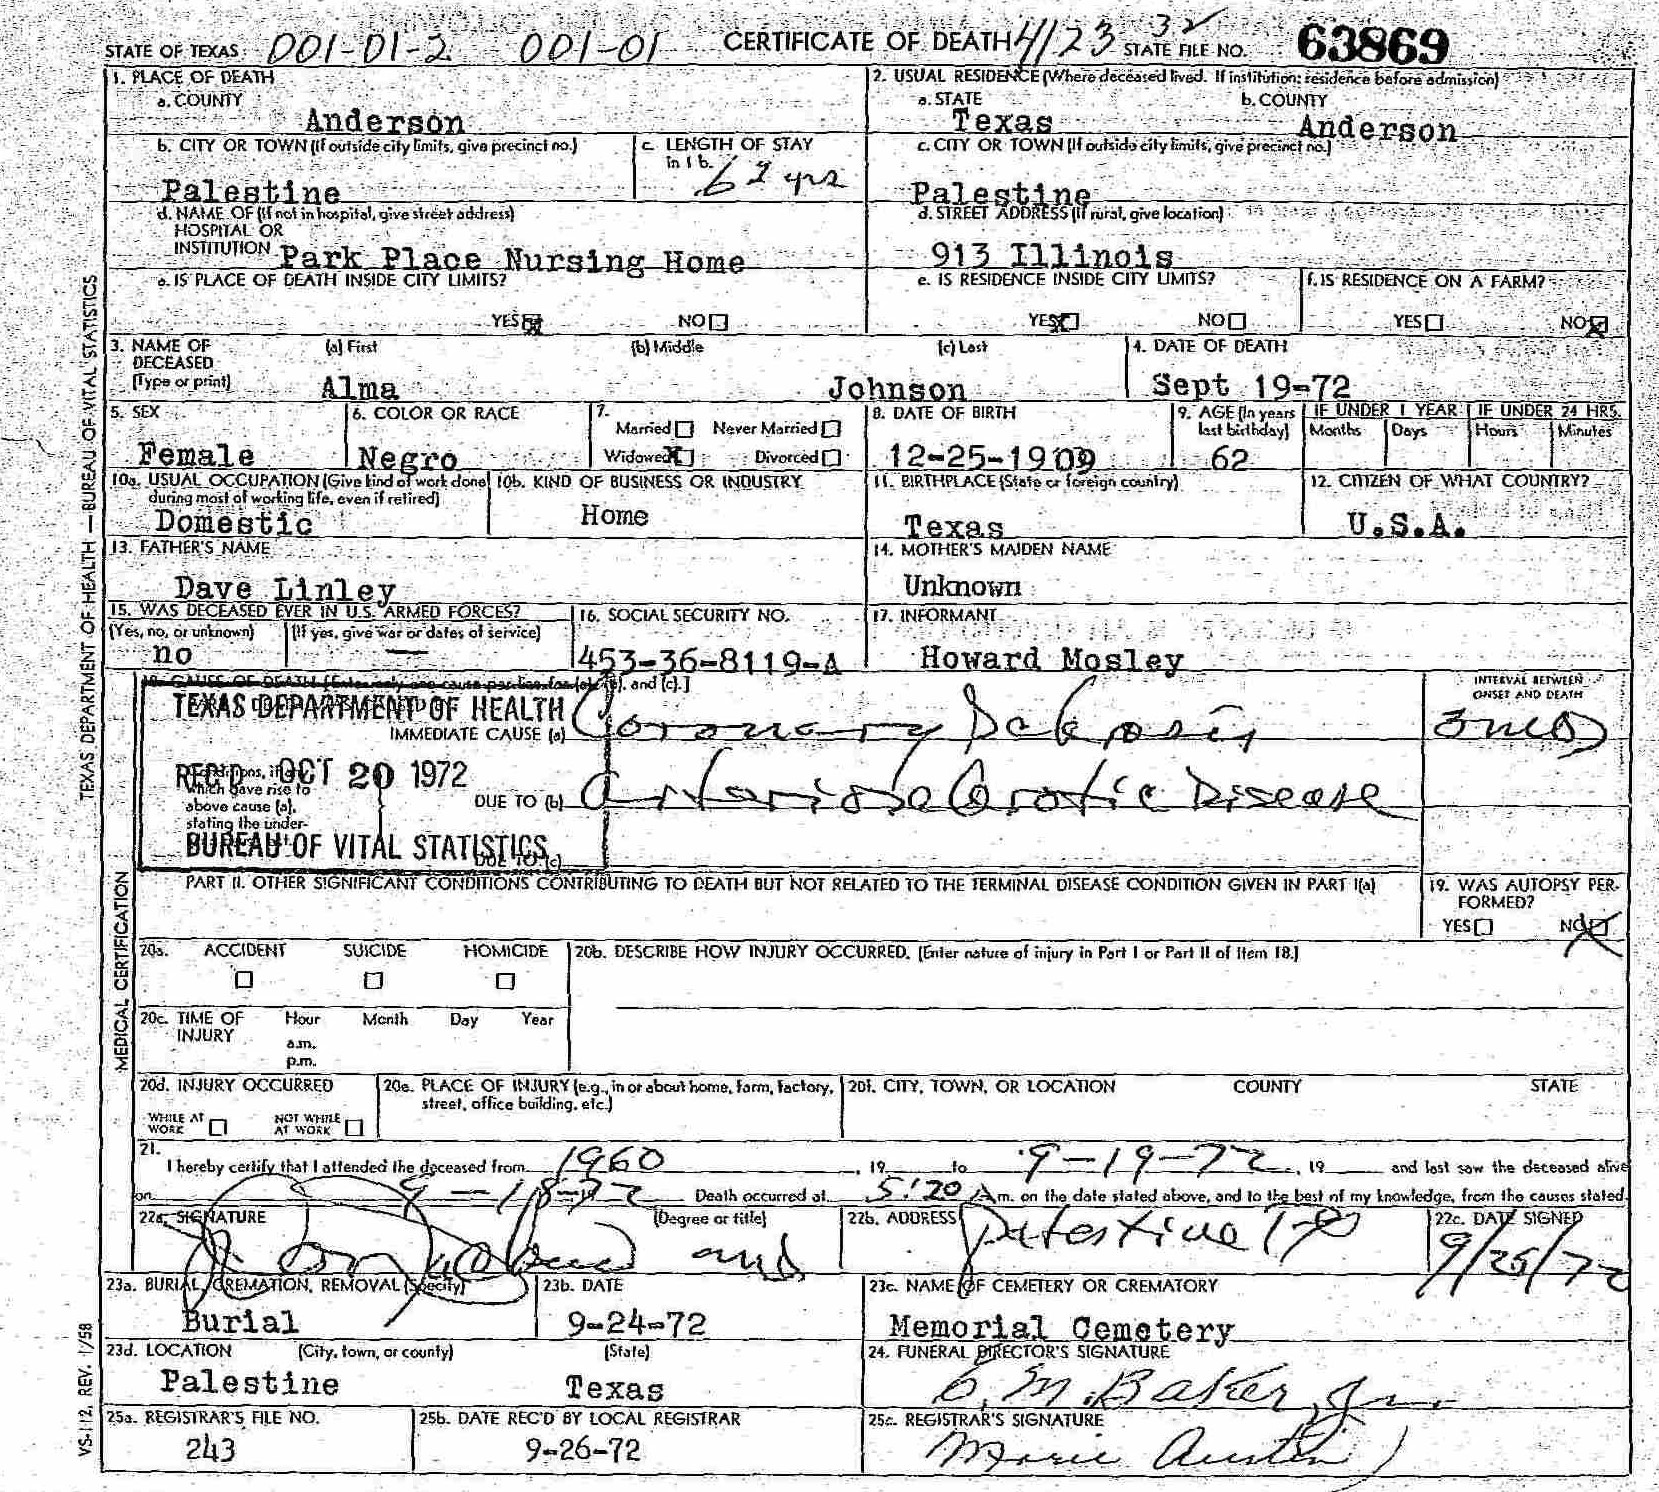 STATE OF TEXAS 001-01-2 001-01 CERTIFICATE OF DEATH 4123 32 STATE FILE NO. 63869
1. PLACE OF DEATH
a. COUNTY
Anderson
2. USUAL RESIDENCE (Where deceased lived. If institution: residence before admission)
a. STATE b. COUNTY
Texas Anderson
b. CITY OR TOWN (If outside city limits, give precinct no.)
Palestine
c. LENGTH OF STAY
in 1 b.
62 yrs
c. CITY OR TOWN (If outside city limits, give precinct no.)
Palestine
d. NAME OF (If not in hospital, give street address)
HOSPITAL OR
INSTITUTION Park Place Nursing Home
d. STREET ADDRESS (If rural, give location)
913 Illinois
e. IS PLACE OF DEATH INSIDE CITY LIMITS?
YES NO
e. IS RESIDENCE INSIDE CITY LIMITS?
YES NO
f. IS RESIDENCE ON A FARM?
YES NO
3. NAME OF (a) First (b) Middle (c) Last
DECEASED
(Type or print) Alma Johnson
4. DATE OF DEATH
Sept 19-72
5. SEX
Female
6. COLOR OR RACE
Negro
7.
Married Never Married
Widowed Divorced
8. DATE OF BIRTH
12-25-1909
9. AGE (In years IF UNDER 1 YEAR IF UNDER 24 HRS.
last birthday) Months Days Hours Minutes
62
10a. USUAL OCCUPATION (Give kind of work done
during most of working life, even if retired)
Domestic
10b. KIND OF BUSINESS OR INDUSTRY
Home
11. BIRTHPLACE (State or foreign country)
Texas
12. CITIZEN OF WHAT COUNTRY?
U.S.A.
13. FATHER'S NAME
Dave Linley
14. MOTHER'S MAIDEN NAME
Unknown
15. WAS DECEASED EVER IN U.S. ARMED FORCES?
(Yes, no, or unknown) (If yes, give war or dates of service)
no —
16. SOCIAL SECURITY NO.
453-36-8119-A
17. INFORMANT
Howard Mosley
18. CAUSE OF DEATH [Enter only one cause per line for (a), (b), and (c).]
TEXAS DEPARTMENT OF HEALTH
REC'D OCT 20 1972
BUREAU OF VITAL STATISTICS
IMMEDIATE CAUSE (a) Coronary
Conditions, if any,
which gave rise to
above cause (a),
stating the under-
DUE TO (b) Disease
DUE TO (c)
INTERVAL BETWEEN
ONSET AND DEATH
3 mos
PART II. OTHER SIGNIFICANT CONDITIONS CONTRIBUTING TO DEATH BUT NOT RELATED TO THE TERMINAL DISEASE CONDITION GIVEN IN PART I(a)
19. WAS AUTOPSY PER-
FORMED?
YES NO
20a. ACCIDENT SUICIDE HOMICIDE
20b. DESCRIBE HOW INJURY OCCURRED. (Enter nature of injury in Part I or Part II of Item 18.)
20c. TIME OF Hour Month Day Year
INJURY
a.m.
p.m.
20d. INJURY OCCURRED
WHILE AT NOT WHILE
WORK AT WORK
20e. PLACE OF INJURY (e.g., in or about home, farm, factory,
street, office building, etc.)
20f. CITY, TOWN, OR LOCATION COUNTY STATE
21.
I hereby certify that I attended the deceased from 1960, 19 to 9-19-72, 19 and last saw the deceased alive
on 9-18-72 Death occurred at 5:20 A m. on the date stated above, and to the best of my knowledge, from the causes stated.
22a. SIGNATURE (Degree or title)
22b. ADDRESS
Palestine
22c. DATE SIGNED
9/25/72
23a. BURIAL, CREMATION, REMOVAL (Specify)
Burial
23b. DATE
9-24-72
23c. NAME OF CEMETERY OR CREMATORY
Memorial Cemetery
23d. LOCATION (City, town, or county) (State)
Palestine Texas
24. FUNERAL DIRECTOR'S SIGNATURE
C. M. Baker, Jr.
25a. REGISTRAR'S FILE NO.
243
25b. DATE REC'D BY LOCAL REGISTRAR
9-26-72
25c. REGISTRAR'S SIGNATURE
Marie Austin
TEXAS DEPARTMENT OF HEALTH — BUREAU OF VITAL STATISTICS
MEDICAL CERTIFICATION
VS-112, REV. 1/58